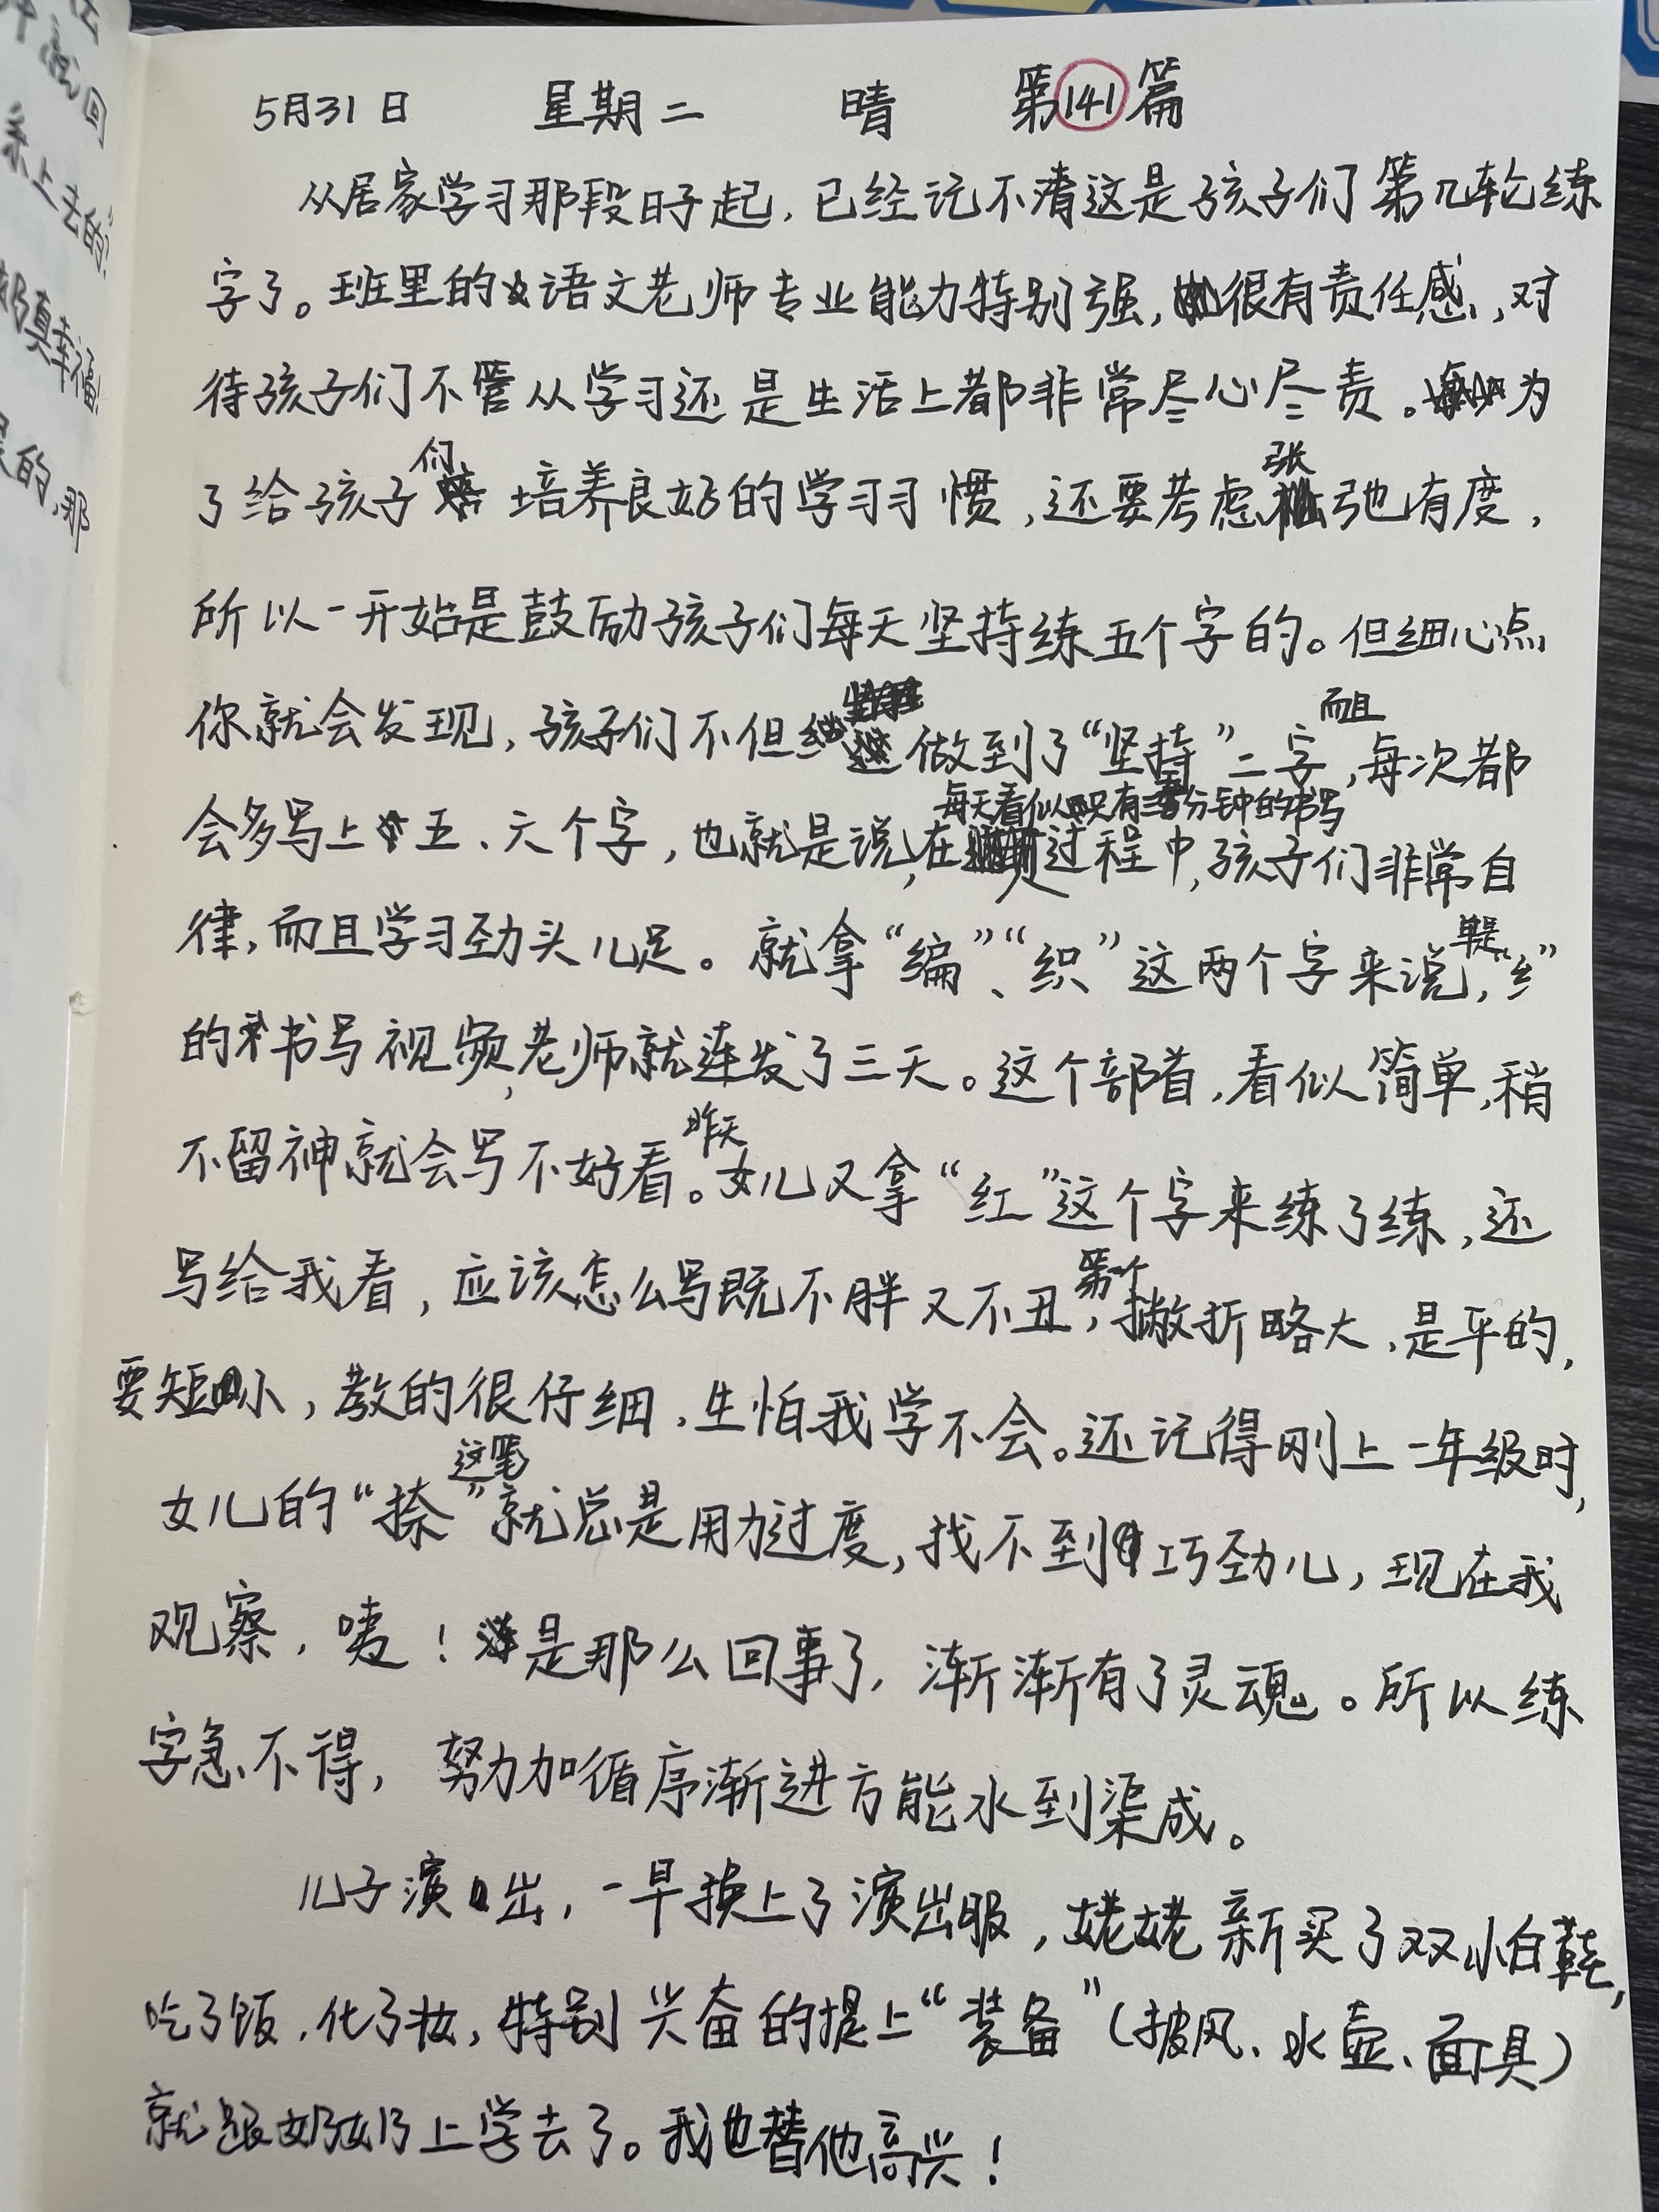 5月31日 星期二 晴 第141篇
从居家学习那段日子起，已经记不清这是孩子们第几轮练
字了。班里的语文老师专业能力特别强，很有责任感，对
待孩子们不管从学习还是生活上都非常尽心尽责。为
了给孩子们培养良好的学习习惯，还要考虑张弛有度，
所以一开始是鼓励孩子们每天坚持练五个字的。但细心点
你就会发现，孩子们不但做到了“坚持”二字，而且每次都
会多写上五、六个字，也就是说，在每天看似只有分钟的书写过程中，孩子们非常自
律，而且学习劲头儿足。就拿“编”、“织”这两个字来说，单是“纟”
的书写视频，老师就连发了三天。这个部首，看似简单，稍
不留神就会写不好看。昨天女儿又拿“红”这个字来练了练，还
写给我看，应该怎么写既不胖又不丑，第一个撇折略大，是平的，
要短小，教的很仔细，生怕我学不会。还记得刚上一年级时，
女儿的“捺”这笔就总是用力过度，找不到巧劲儿，现在我
观察，唛！是那么回事了，渐渐有了灵魂。所以练
字急不得，努力加循序渐进方能水到渠成。
儿子演出，一早换上了演出服，姥姥新买了双小白鞋，
吃了饭，化了妆，特别兴奋的提上“装备”（披风、水壶、面具）
就跟奶奶上学去了。我也替他高兴！
系上去的
奶真幸福
的，那